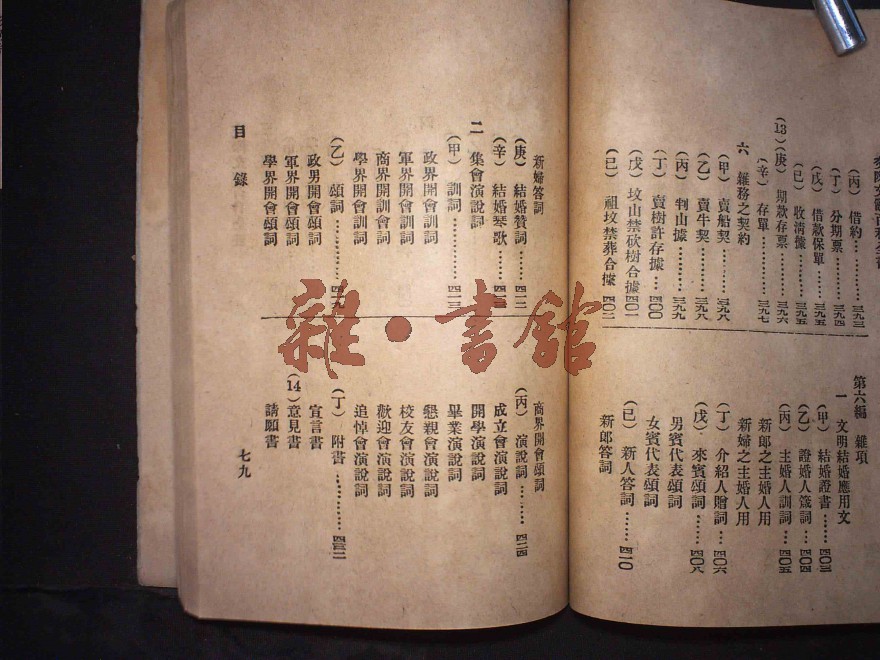 (丙) 借約………三九三
(丁) 分期票………三九四
(戊) 借款保單……三九五
(巳) 收清據………三九五
(13)(庚) 期款存票……三九六
(辛) 存單…………三九七
六 雜務之契約
(甲) 賣船契………三九八
(乙) 賣牛契………三九八
(丙) 判山據………三九九
(丁) 賣樹許存據…四〇〇
(戊) 坟山禁砍樹合據四〇一
(已) 祖坟禁葬合據 四〇二
第六編 雜項
一 文明結婚應用文
(甲) 結婚證書………四〇三
(乙) 證婚人箴詞…四〇四
(丙) 主婚人訓詞…四〇五
新郎之主婚人用
新婦之主婚人用
(丁) 介紹人贈詞…四〇六
(戊) 來賓頌詞……四〇八
男賓代表頌詞
女賓代表頌詞
(已) 新人答詞………四一〇
新郎答詞
新婦答詞
(庚) 結婚贊詞………四一二
(辛) 結婚琴歌………四一二
二 集會演說詞
(甲) 訓詞……………四一三
政界開會訓詞
軍界開會訓詞
商界開訓會詞
學界開會訓詞
(乙) 頌詞……………四一九
政男開會頌詞
軍界開會頌詞
學界開會頌詞
商界開會頌詞
(丙) 演說詞…………四二四
成立會演說詞
開學演說詞
畢業演說詞
懇親會演說詞
校友會演說詞
歡迎會演說詞
追悼會演說詞
(丁) 附書……………四三二
宣言書
(14)意見書
請願書
目 錄
七九
雜·書館